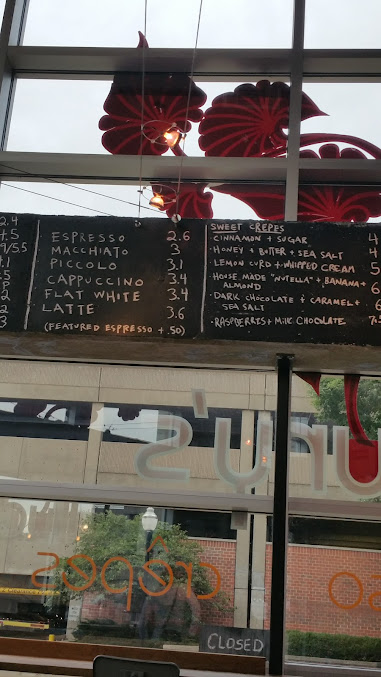 2.4
4.5
ESPRESSO 2.6
MACCHIATO 3
PICCOLO 3.1
CAPPUCCINO 3.4
FLAT WHITE 3.4
LATTE 3.6
(FEATURED ESPRESSO +.50)
SWEET CRÊPES
CINNAMON + SUGAR 4
· HONEY + BUTTER + SEA SALT 4
· LEMON CURD + WHIPPED CREAM 5
· HOUSE MADE "NUTELLA" + BANANA + 6
ALMOND
· DARK CHOCOLATE + CARAMEL + 6
SEA SALT
· RASPBERRIES + MILK CHOCOLATE
ny's
crêpes
so
CLOSED